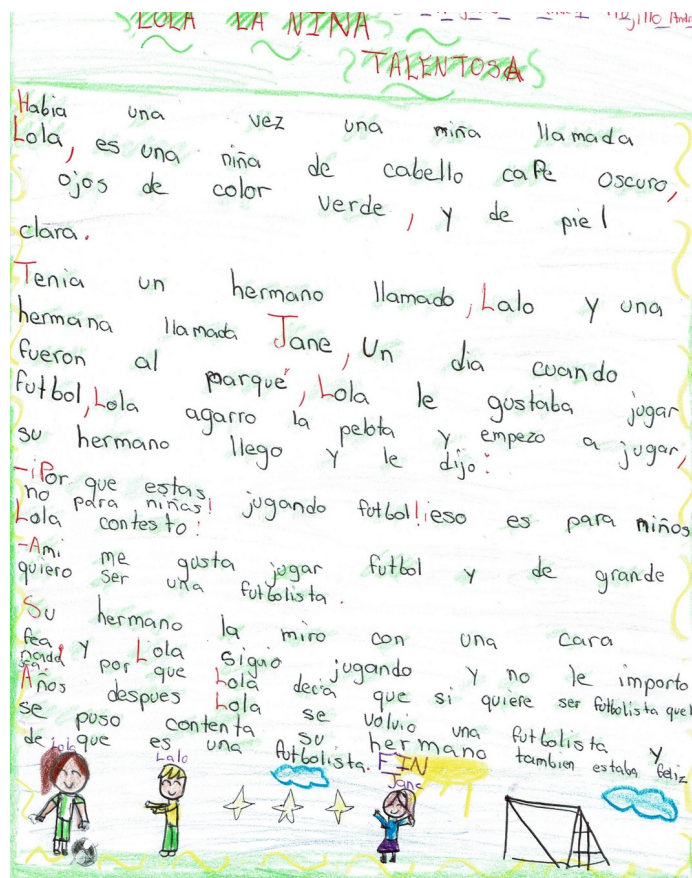 LOLA LA NIÑA
TALENTOSA
Habia una vez una miña llamada
Lola, es una niña de cabello cafe oscuro,
ojos de color verde, y de piel
clara.
Tenia un hermano llamado, Lalo y una
hermana llamada Jane, Un dia cuando
fueron al parque, Lola le gustaba jugar
futbol, Lola agarro la pelota y empezo a jugar,
su hermano llego y le dijo:
-¡Por que estas jugando futbol!¡eso es para niños
no para niñas!
Lola contesto:
-Ami me gusta jugar futbol y de grande
quiero ser una futbolista.
Su hermano la miro con una cara
fea, y Lola siguio jugando y no le importo
nada por que Lola decia que si quiere ser futbolista que
sea.
Años despues Lola se volvio una futbolista y
se puso contenta su hermano tambien estaba feliz
de que es una futbolista. FIN
Lola Lalo Jane